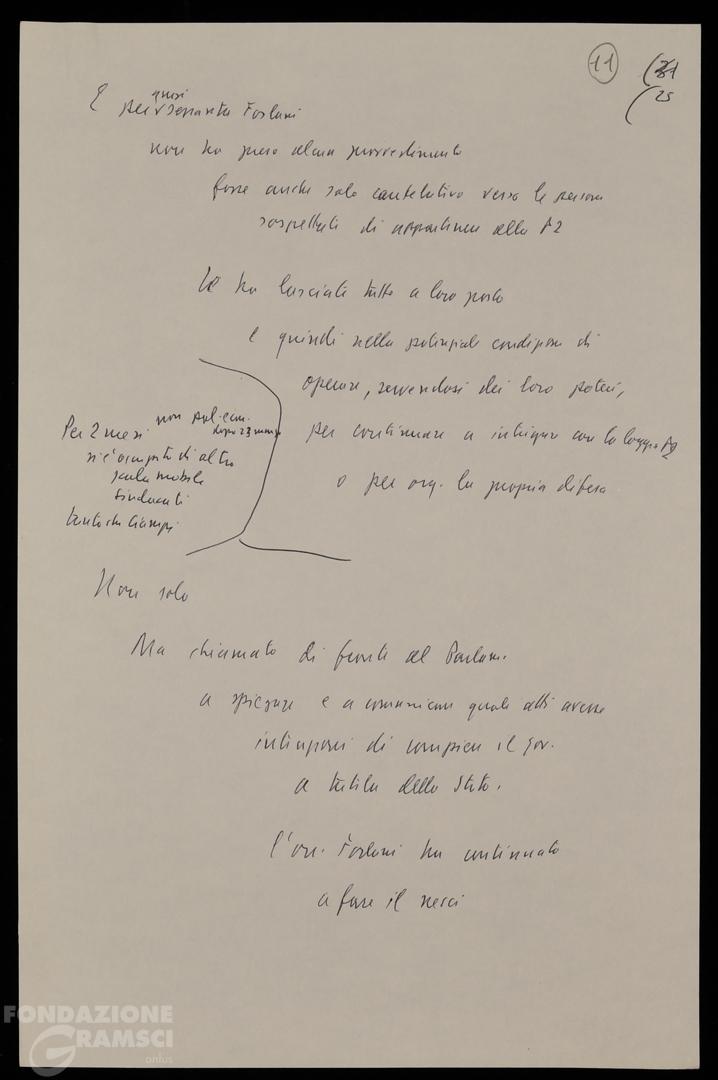 11
25
E per quasi Forlani
non ha preso alcun provvedimento
fosse anche solo cautelativo verso le persone
sospettate di appartenere alla P2
ha lasciati tutti a loro posto
e quindi nella potenziale condizione di
operare, servendosi dei loro poteri,
per continuare a intrigare con la loggia P2
o per org. la propria difesa
Per 2 mesi non pol. econ.
dopo 23 marzo
si è occupato di altro
scala mobile
sindacati
tanto che Ciampi
Non solo
Ma chiamato di fronte al Parlam.
a spiegare e a comunicare quali atti avesse
intenzioni di compiere il gov.
a tutela dello Stato.
l'on. Forlani ha continuato
a fare il nesci
FONDAZIONE
GRAMSCI
onlus